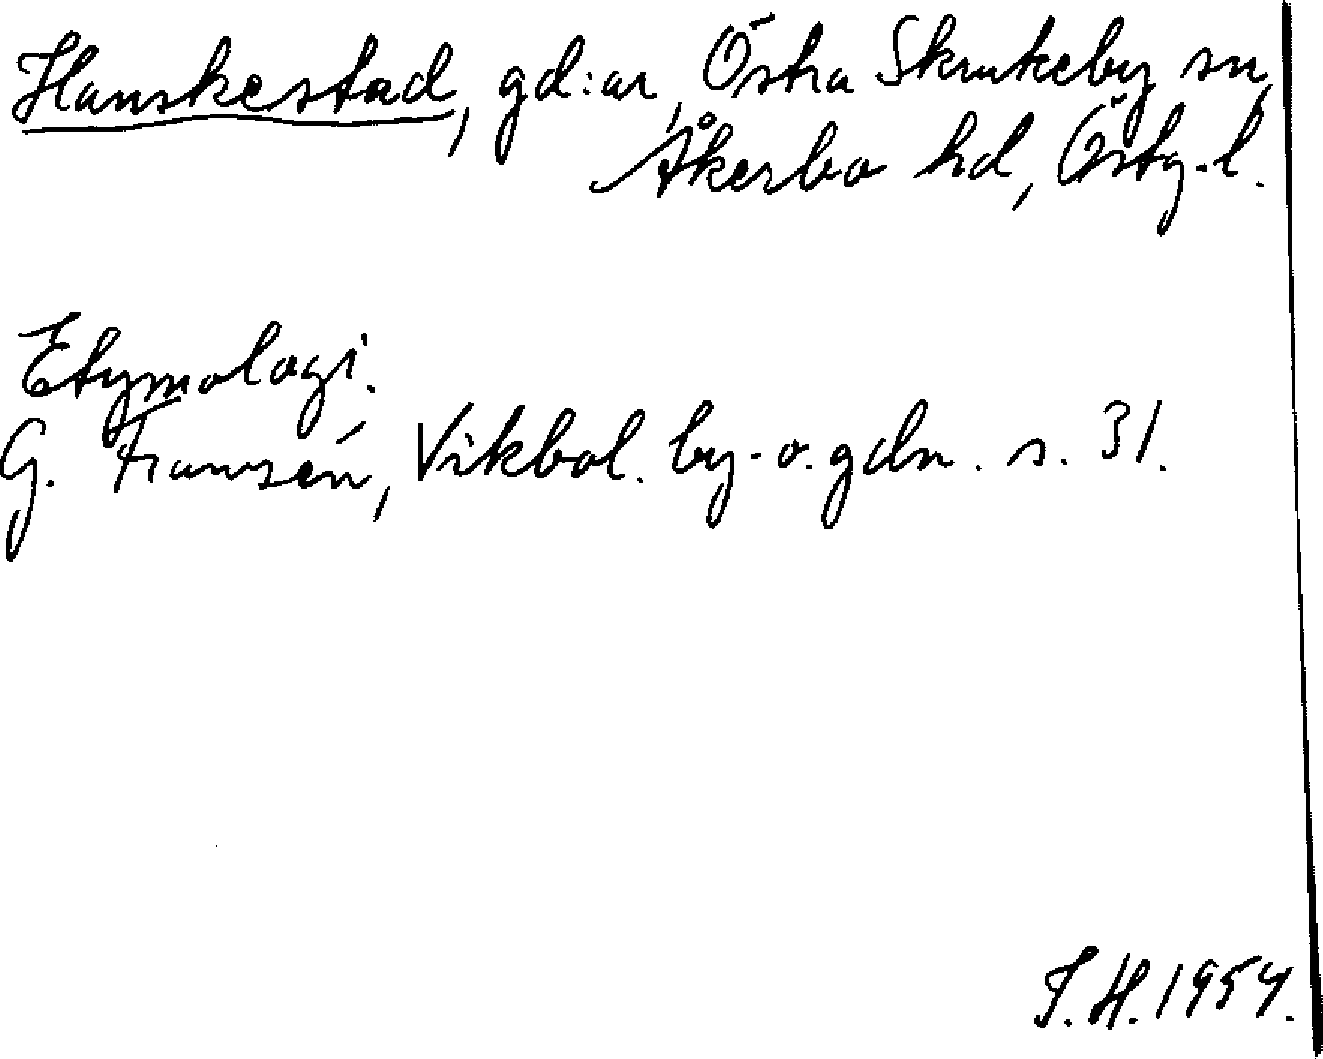 Hanskestad, gd:ar, Östra Skrukeby sn,
Åkerbo hd, Östg.l.
Etymologi.
G. Franzén, Vikbol. by- o. gdn. s. 31.
I.H. 1954.